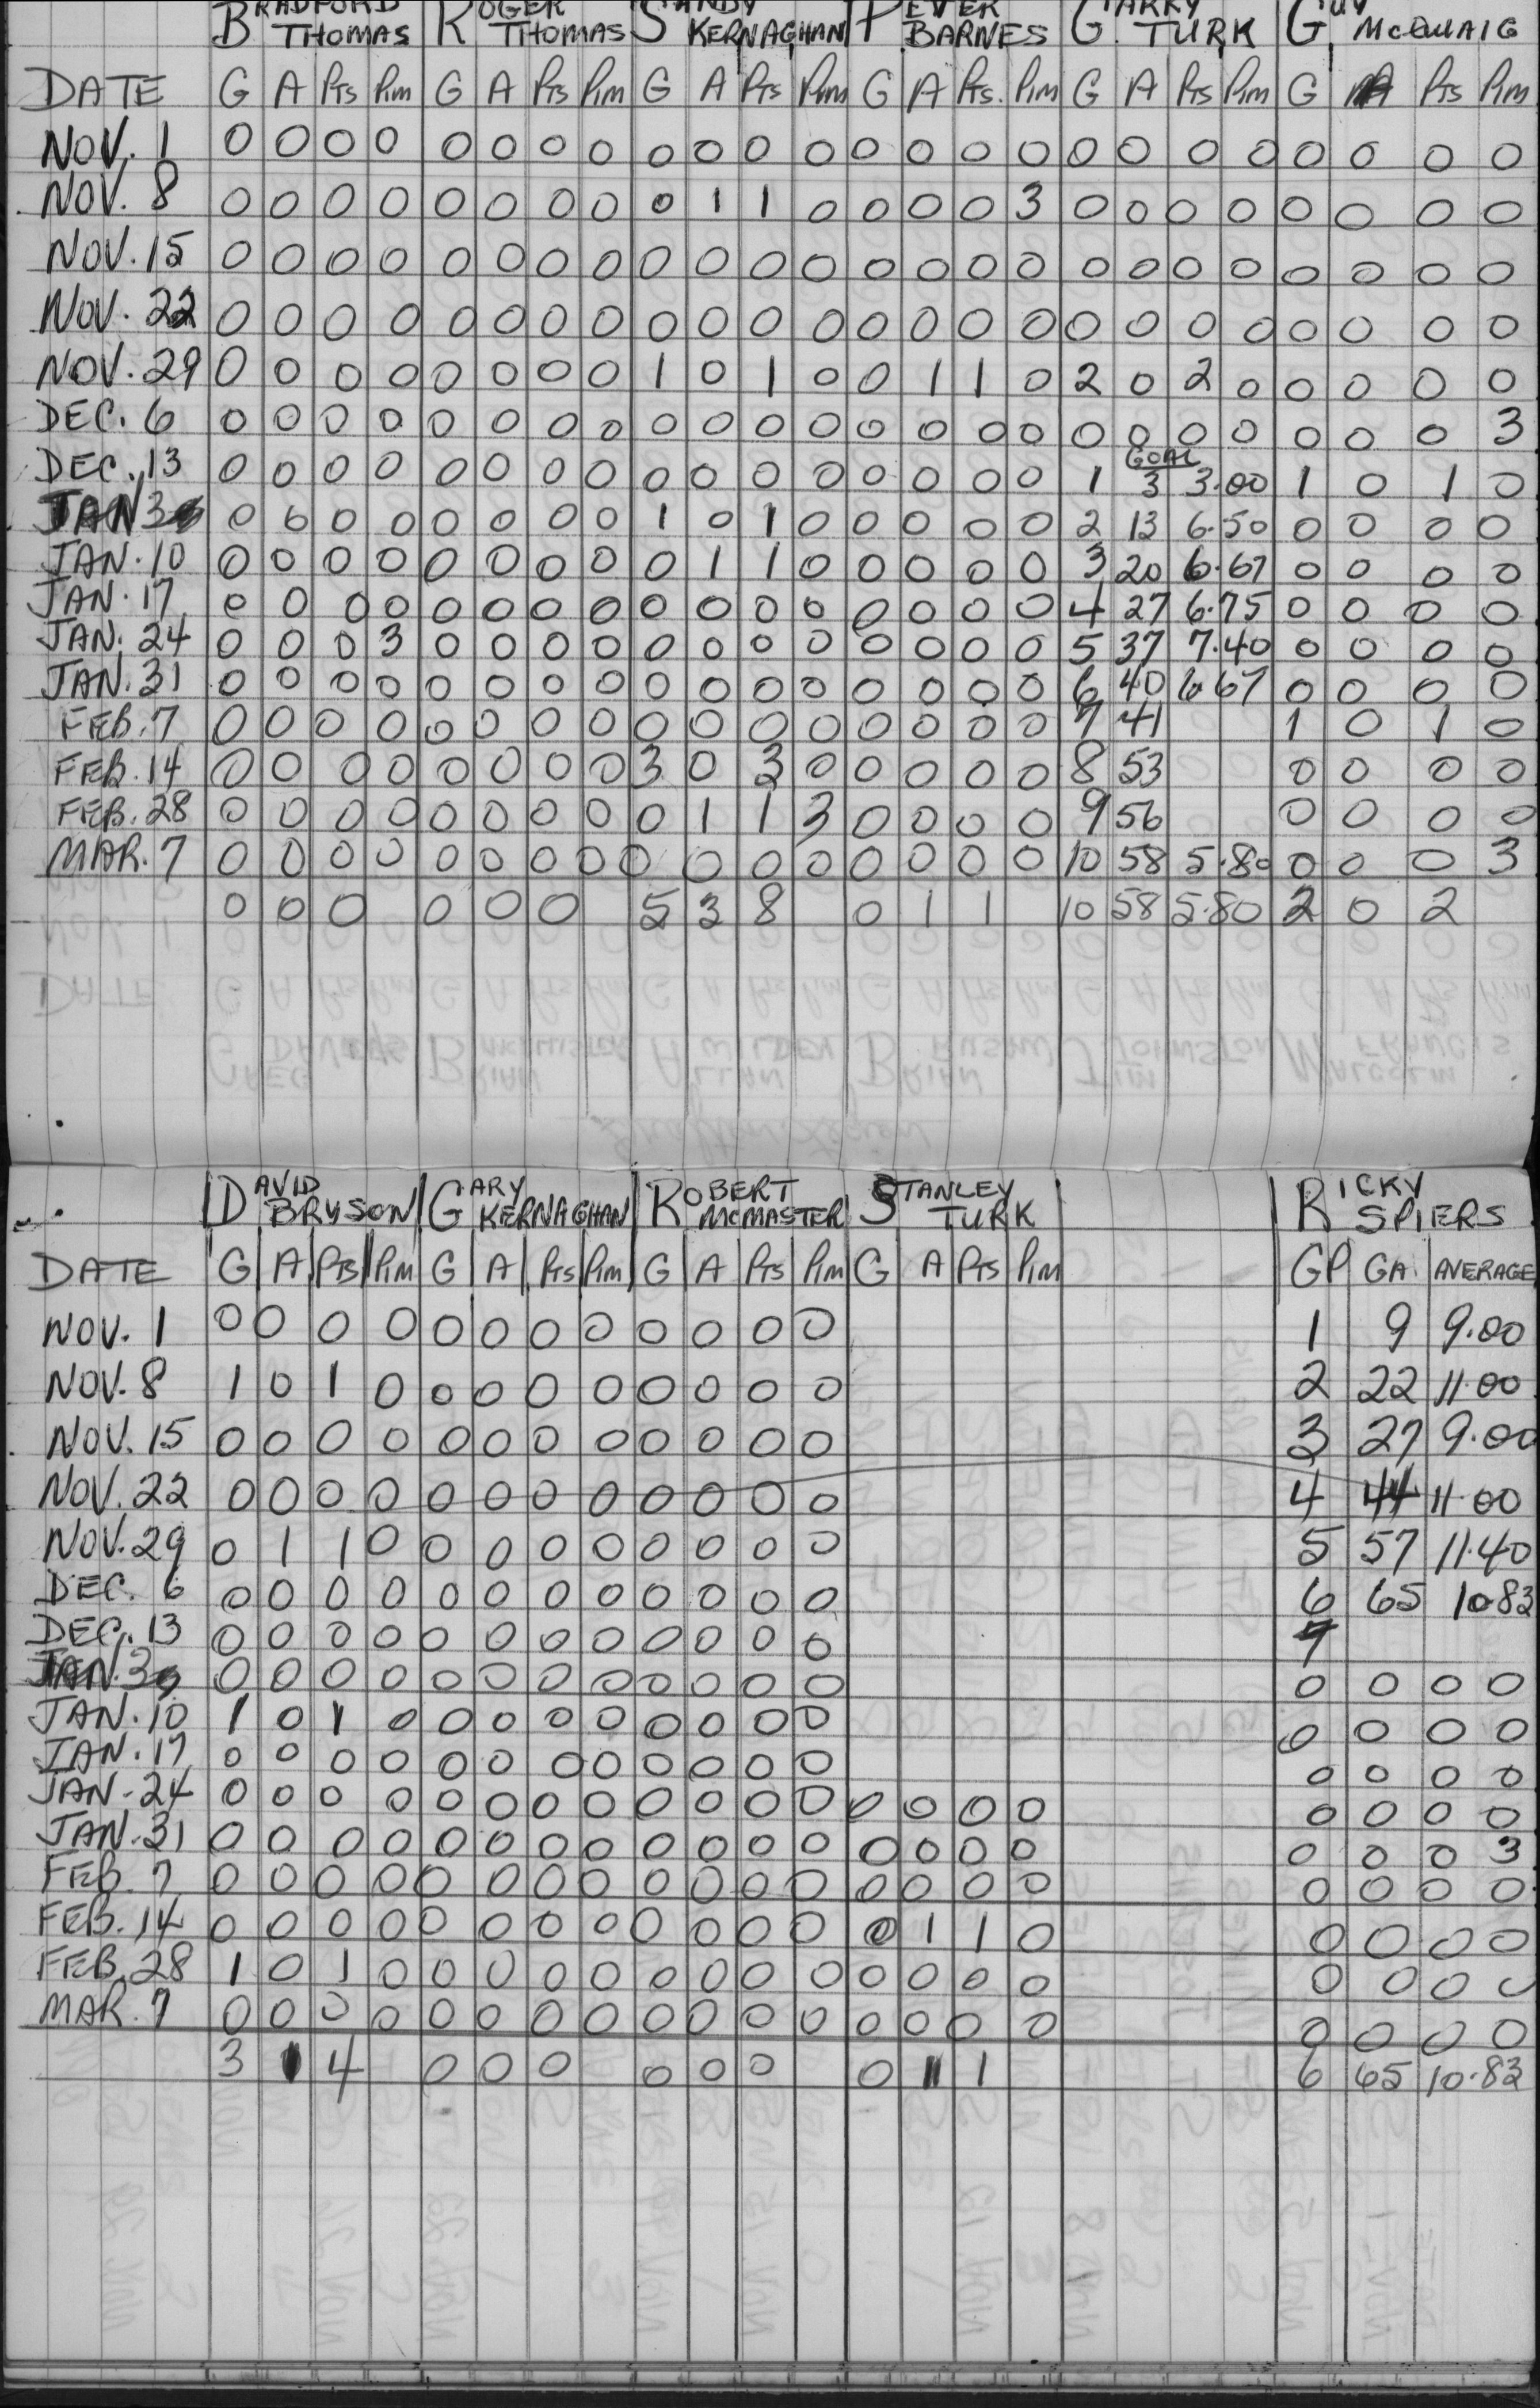 BRADFORD THOMAS ROGER THOMAS SANDY KERNAGHAN PETER BARNES GARRY TURK GUY McQUAIG
DATE G A Pts Pim G A Pts Pim G A Pts Pim G A Pts. Pim G A Pts Pim G A Pts Pim
NOV. 1 0 0 0 0 0 0 0 0 0 0 0 0 0 0 0 0 0 0 0 0 0 0 0 0
NOV. 8 0 0 0 0 0 0 0 0 0 1 1 0 0 0 0 3 0 0 0 0 0 0 0 0
NOV. 15 0 0 0 0 0 0 0 0 0 0 0 0 0 0 0 0 0 0 0 0 0 0 0 0
NOV. 22 0 0 0 0 0 0 0 0 0 0 0 0 0 0 0 0 0 0 0 0 0 0 0 0
NOV. 29 0 0 0 0 0 0 0 0 1 0 1 0 0 1 1 0 2 0 2 0 0 0 0 0
DEC. 6 0 0 0 0 0 0 0 0 0 0 0 0 0 0 0 0 0 0 0 0 0 0 0 3
GOAL
DEC. 13 0 0 0 0 0 0 0 0 0 0 0 0 0 0 0 0 1 3 3.00 1 0 1 0
JAN 3 0 0 0 0 0 0 0 0 1 0 1 0 0 0 0 0 2 13 6.50 0 0 0 0
JAN. 10 0 0 0 0 0 0 0 0 0 1 1 0 0 0 0 0 3 20 6.67 0 0 0 0
JAN. 17 0 0 0 0 0 0 0 0 0 0 0 0 0 0 0 0 4 27 6.75 0 0 0 0
JAN. 24 0 0 0 3 0 0 0 0 0 0 0 0 0 0 0 0 5 37 7.40 0 0 0 0
JAN. 31 0 0 0 0 0 0 0 0 0 0 0 0 0 0 0 0 6 40 6.67 0 0 0 0
FEB. 7 0 0 0 0 0 0 0 0 0 0 0 0 0 0 0 0 7 41 1 0 1 0
FEB. 14 0 0 0 0 0 0 0 0 3 0 3 0 0 0 0 0 8 53 0 0 0 0
FEB. 28 0 0 0 0 0 0 0 0 0 1 1 3 0 0 0 0 9 56 0 0 0 0
MAR. 7 0 0 0 0 0 0 0 0 0 0 0 0 0 0 0 0 10 58 5.80 0 0 0 3
0 0 0 0 0 0 5 3 8 0 1 1 10 58 5.80 2 0 2
DAVID BRYSON GARY KERNAGHAN ROBERT McMASTER STANLEY TURK RICKY SPIERS
DATE G A Pts Pim G A Pts Pim G A Pts Pim G A Pts Pim GP GA AVERAGE
NOV. 1 0 0 0 0 0 0 0 0 0 0 0 0 1 9 9.00
NOV. 8 1 0 1 0 0 0 0 0 0 0 0 0 2 22 11.00
NOV. 15 0 0 0 0 0 0 0 0 0 0 0 0 3 27 9.00
NOV. 22 0 0 0 0 0 0 0 0 0 0 0 0 4 44 11.00
NOV. 29 0 1 1 0 0 0 0 0 0 0 0 0 5 57 11.40
DEC. 6 0 0 0 0 0 0 0 0 0 0 0 0 6 65 10.83
DEC. 13 0 0 0 0 0 0 0 0 0 0 0 0 7
JAN. 3 0 0 0 0 0 0 0 0 0 0 0 0 0 0 0 0
JAN. 10 1 0 1 0 0 0 0 0 0 0 0 0 0 0 0 0
JAN. 17 0 0 0 0 0 0 0 0 0 0 0 0 0 0 0 0
JAN. 24 0 0 0 0 0 0 0 0 0 0 0 0 0 0 0 0 0 0 0 0
JAN. 31 0 0 0 0 0 0 0 0 0 0 0 0 0 0 0 0 0 0 0 3
FEB. 7 0 0 0 0 0 0 0 0 0 0 0 0 0 0 0 0 0 0 0 0
FEB. 14 0 0 0 0 0 0 0 0 0 0 0 0 0 1 1 0 0 0 0 0
FEB. 28 1 0 1 0 0 0 0 0 0 0 0 0 0 0 0 0 0 0 0 0
MAR. 7 0 0 0 0 0 0 0 0 0 0 0 0 0 0 0 0 0 0 0 0
3 1 4 0 0 0 0 0 0 0 1 1 6 65 10.83